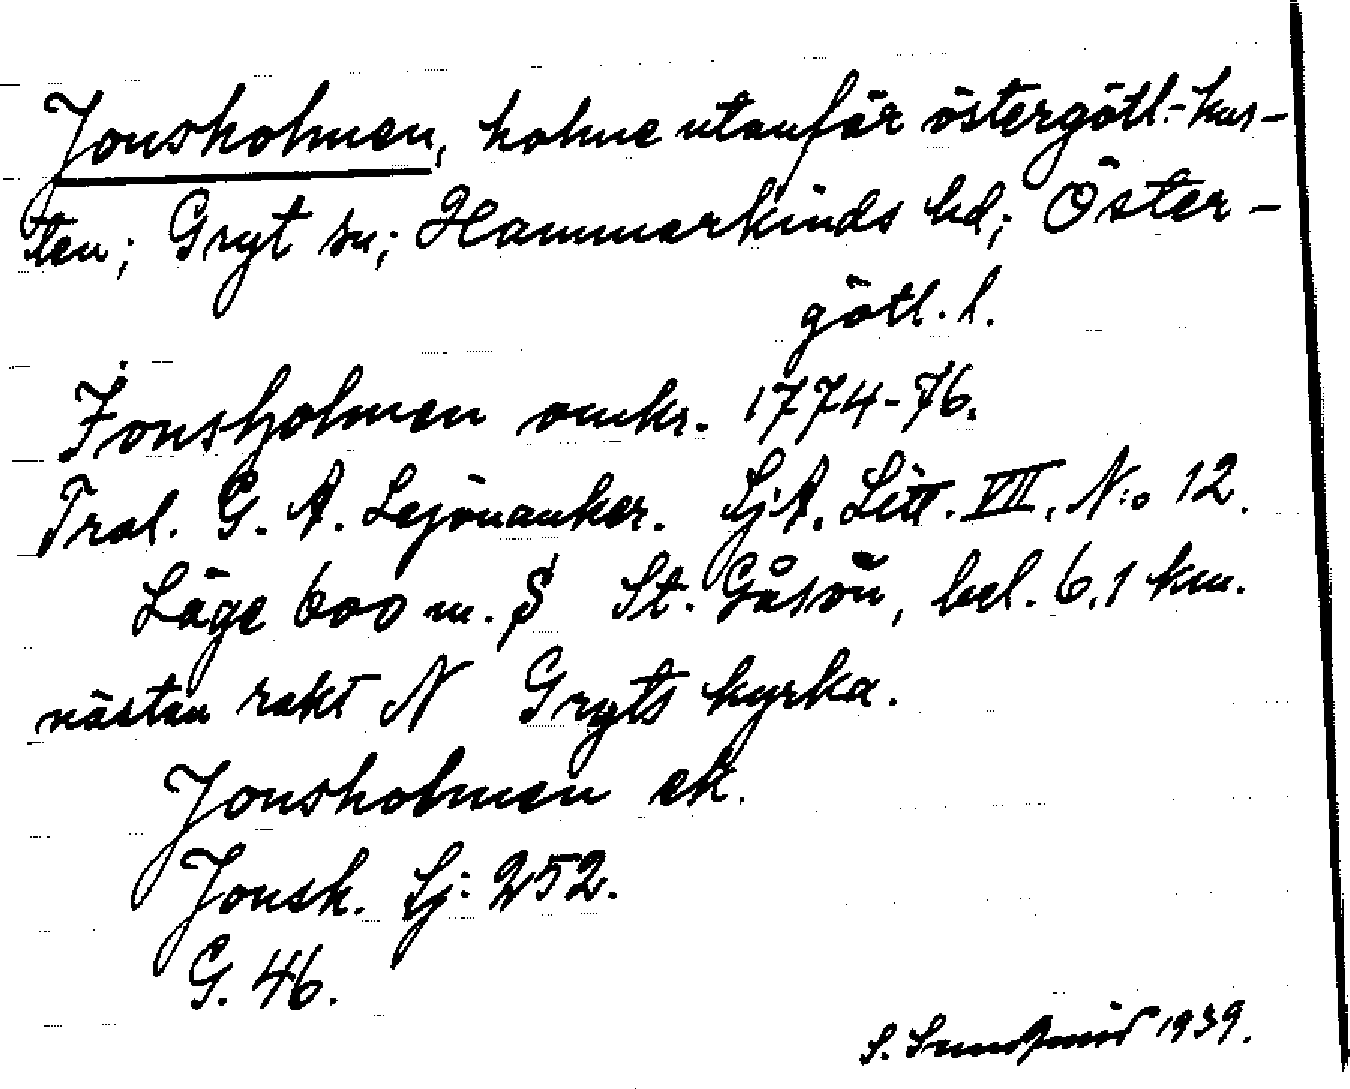 Jonsholmen, holme utanför östergötl.-kus-
ten; Gryt sn; Hammarkinds hd; Öster-
götl. l.
Jonsholmen omkr. 1774-76.
Trol. G. A. Lejonanker. Sj:A. Litt. VII, N:o 12.
Läge 600 m. S St. Gåsön, bel. 6,1 km.
nästan rakt N Gryts kyrka.
Jonsholmen ek.
Jonsh. Sj: 252.
G. 46.
S. 1939.